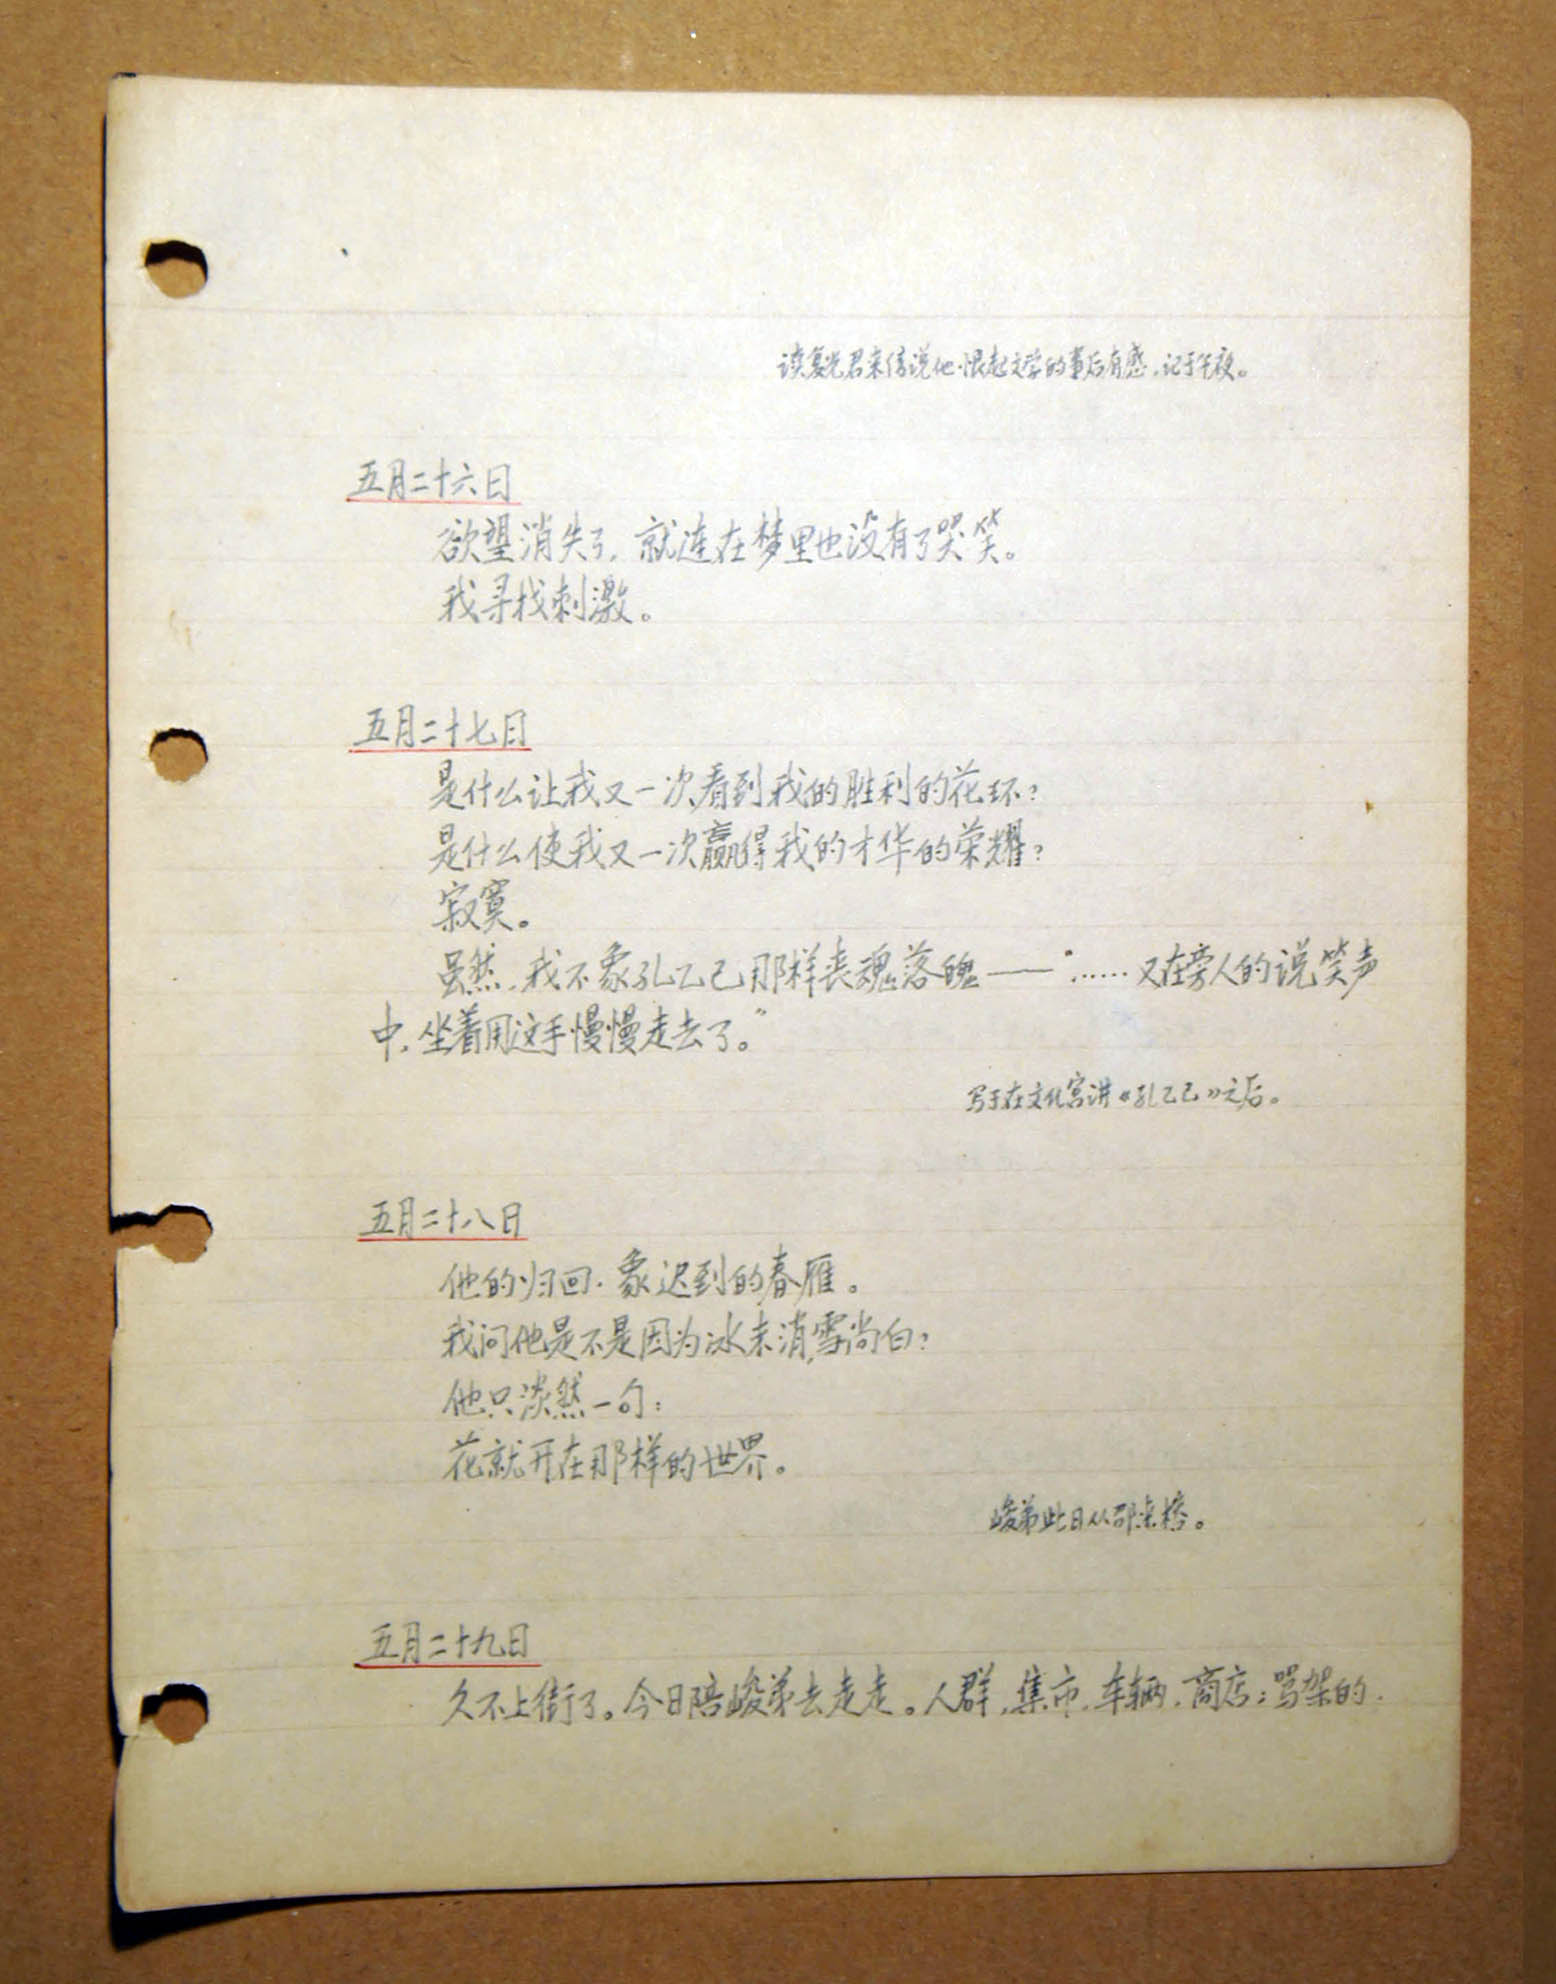 读复光君来信说他恨起文学的事后有感,记于午夜。
五月二十六日
欲望消失了,就连在梦里也没有了哭、笑。
我寻找刺激。
五月二十七日
是什么让我又一次看到我的胜利的花环?
是什么使我又一次赢得我的才华的荣耀?
寂寞。
虽然,我不象孔乙己那样丧魂落魄——“……又在旁人的说笑声
中,坐着用这手慢慢走去了。”
写于在文化宫讲《孔乙己》之后。
五月二十八日
他的归回,象迟到的春雁。
我问他是不是因为冰未消,雪尚白?
他只淡然一句:
花就开在那样的世界。
峻弟此日从邵来榕。
五月二十九日
久不上街了。今日陪峻弟去走走。人群,集市,车辆,商店;骂架的,